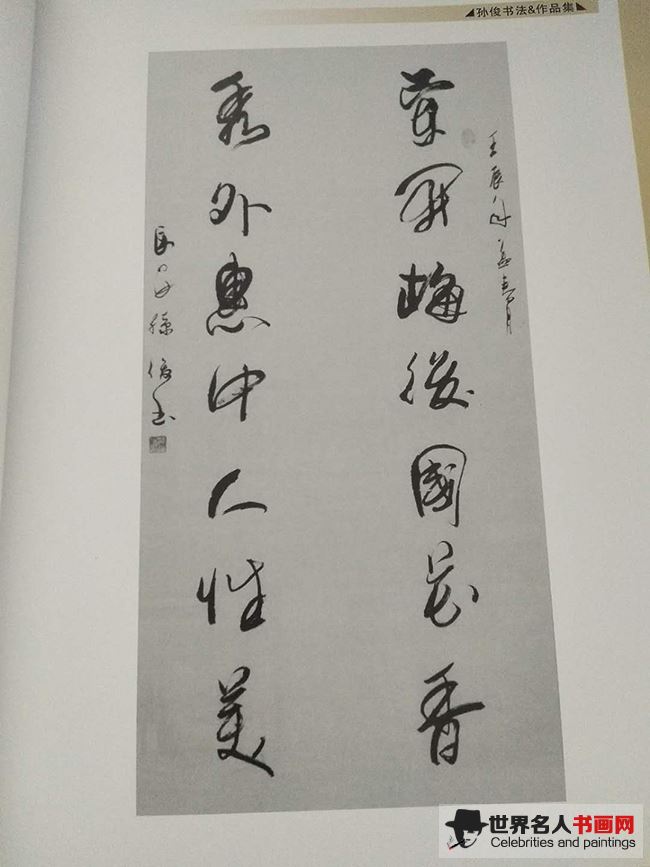 ◢孙俊书法&作品集◣
壬辰年孟春月
梅後國花香
秀外惠中人性美
孫俊書
世界名人书画网
Celebrities and paintings